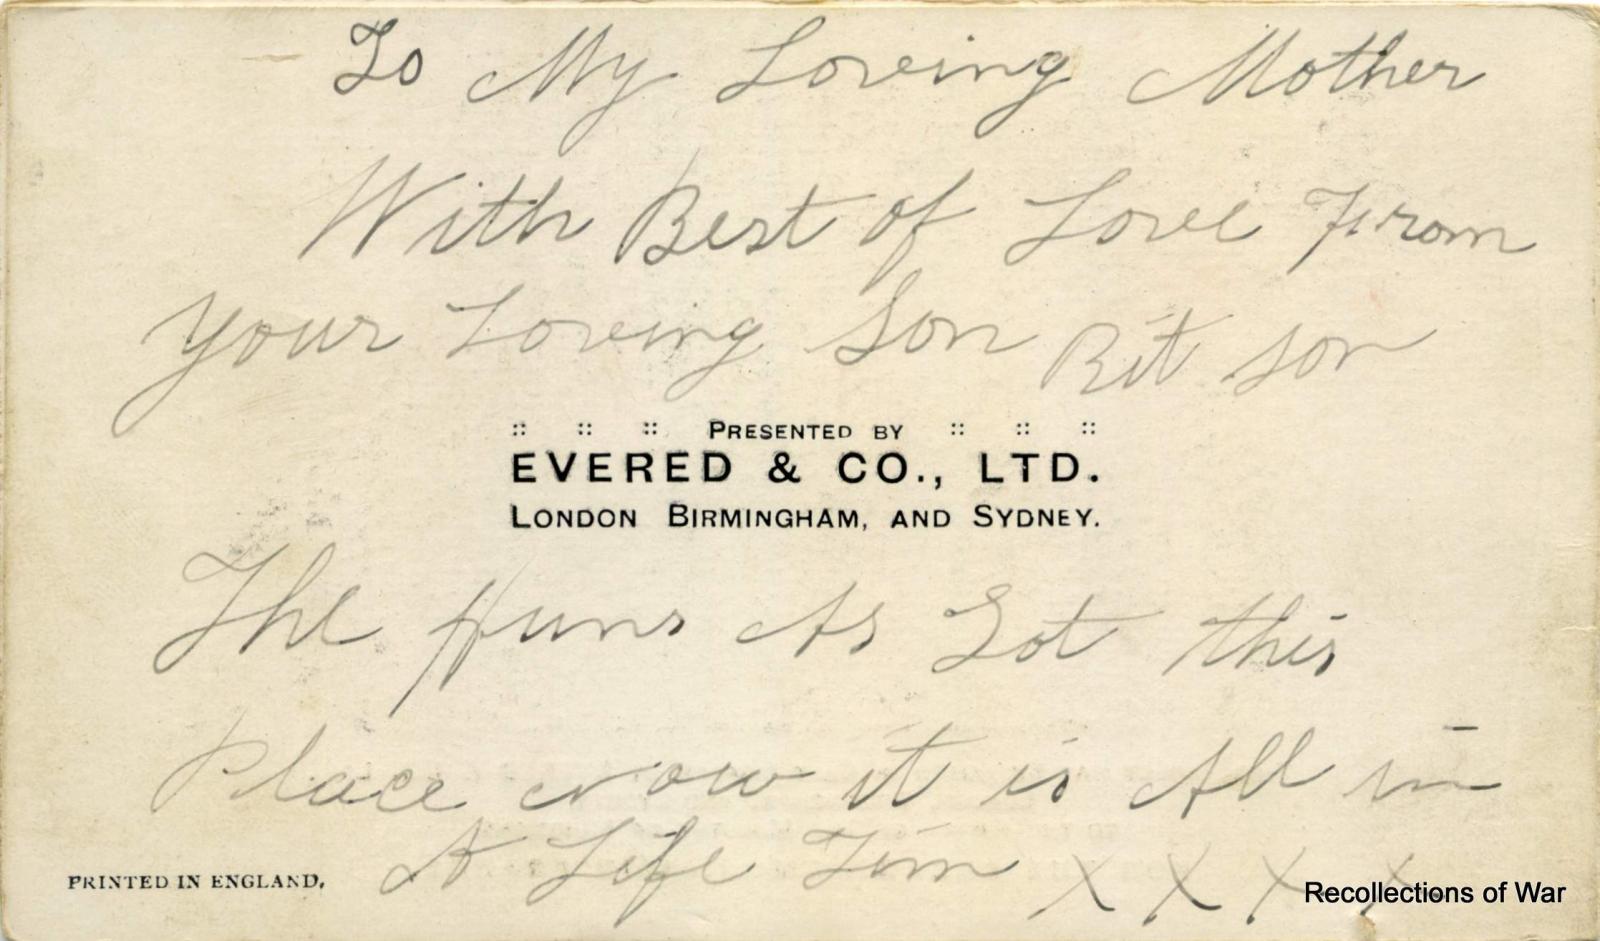 To My Loving Mother
With Best of Love From
your Loving Son Bit son
:: :: :: PRESENTED BY :: :: ::
EVERED & CO., LTD.
LONDON BIRMINGHAM, AND SYDNEY.
The Huns As Got this
Place now it is All in
A Life Tim X X X X
PRINTED IN ENGLAND.
Recollections of War